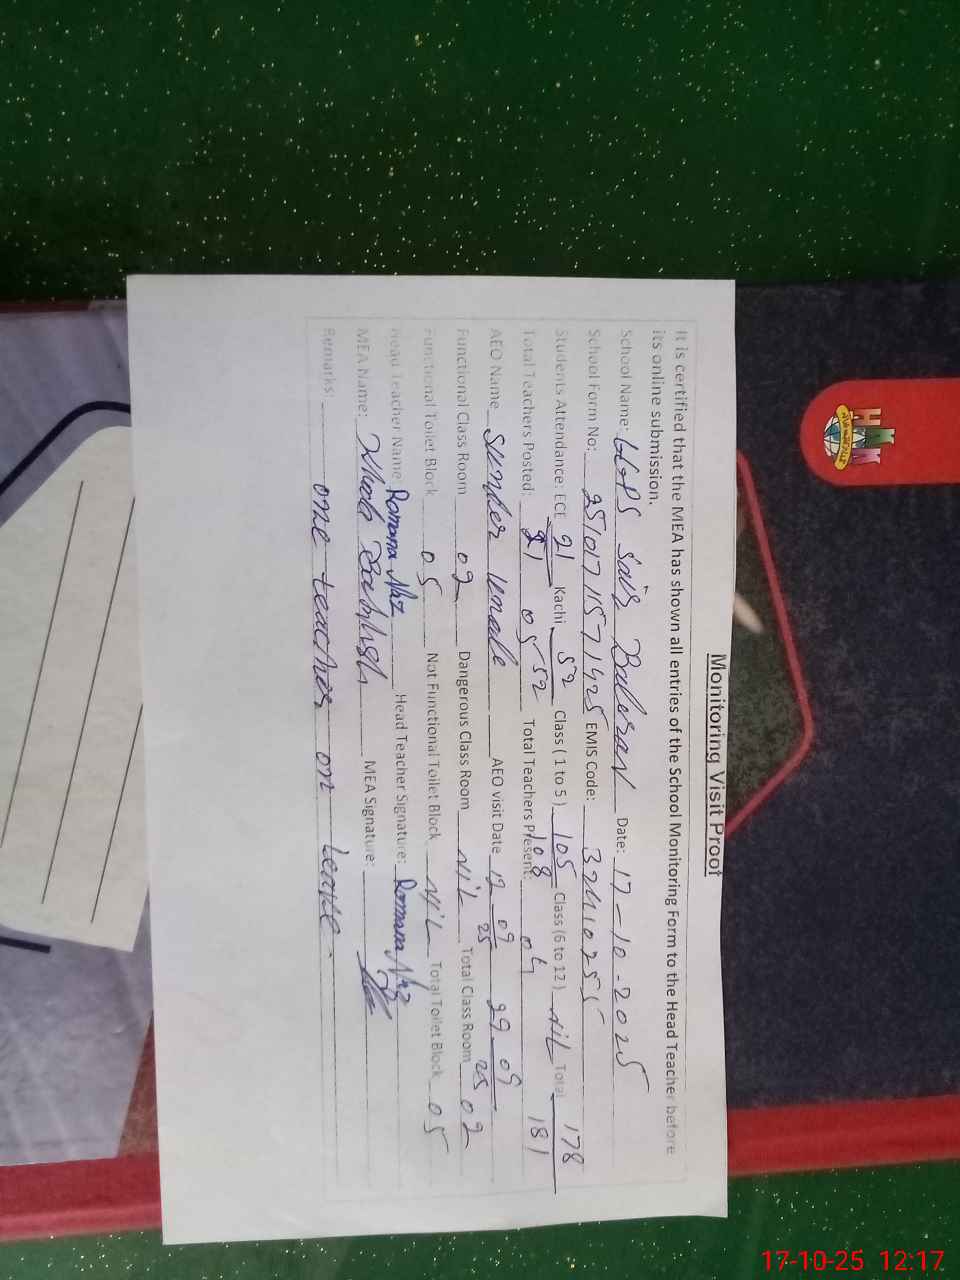 Monitoring Visit Proof
It is certified that the MEA has shown all entries of the School Monitoring Form to the Head Teacher before
its online submission.
School Name: GGPS Date: 17-10-2025
School Form No: EMIS Code: 32410255
Students Attendance: ECE 21 Kachi 52 Class ( 1 to 5 ) 105 Class (6 to 12 ) NiL Total 178
21 52 108 181
Total Teachers Posted: 05 Total Teachers Present: 04
AEO Name AEO visit Date 09 25 29 09 25
Functional Class Room 02 Dangerous Class Room NiL Total Class Room 02
Functional Toilet Block 05 Not Functional Toilet Block NiL Total Toilet Block 05
Head Teacher Name: Romana Naz Head Teacher Signature: Romana Naz
MEA Name: MEA Signature:
Remarks: one teacher on Leave.
HAK
17-10-25 12:17